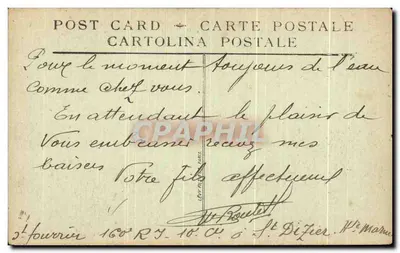 POST CARD - CARTE POSTALE
CARTOLINA POSTALE
Pour le moment toujours de l'eau
comme chez vous.
En attendant le plaisir de
vous embrasser recevez mes
baisers Votre fils affectueux
fourrier 160e RI - 10e Cie à St Dizier Hte Marne
CPARAMA